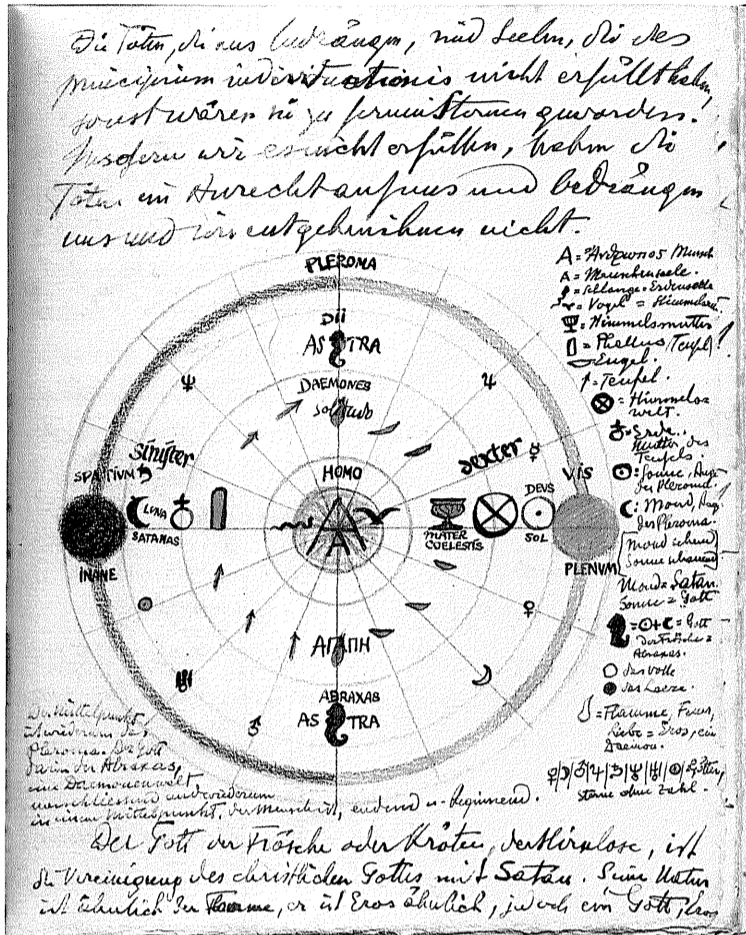 Die Toten, die uns bedrängen, sind Seelen, die das
principium individuationis nicht erfüllt haben,
sonst wären sie zu fernen Sternen geworden.
Insofern wir es nicht erfüllen, haben die
Toten ein Anrecht auf uns und bedrängen
uns und wir entgehen ihnen nicht.
PLEROMA
DII
ASTRA
DAEMONES
SOLITUDO
SINISTER
DEXTER
HOMO
SPATIUM
VIS
LUNA
SATANAS
A
A
MATER
COELESTIS
DEVS
SOL
INANE
PLENVM
ΑΓΑΠΗ
ABRAXAS
ASTRA
A = Mensch
A = Menschenseele.
= Schlange = Erdenseele
= Vogel = Himmelsseele
= Himmelsmutter
= Phallus (Teufel)!
= Engel.
= Teufel.
= Himmels-
welt.
= Erde.
Mutter des
Teufels.
= Sonne, Auge
des Pleroma.
: Mond, Auge
des Pleroma.
Mond
Sonne
Mond = Satan.
Sonne = Gott
= Gott
der Frösche =
Abraxas.
das Volle
das Leere.
= Flamme, Feuer,
Liebe = Eros, ein
Daemon.
Götter,
Sterne ohne Zahl.
Der Mittelpunkt
ist wiederum das
Pleroma. Der Gott
darin der Abraxas,
eine Daemonenwelt
umschliesst und wiederum
in einem Mittelpunkt, der Menschheit, endend u. beginnend.
Der Gott der Frösche oder Kröten, der Hirnlose, ist
die Vereinigung des christlichen Gottes mit Satan. Seine Natur
ist ähnlich der Flamme, er ist Eros ähnlich, jedoch ein Gott, Eros